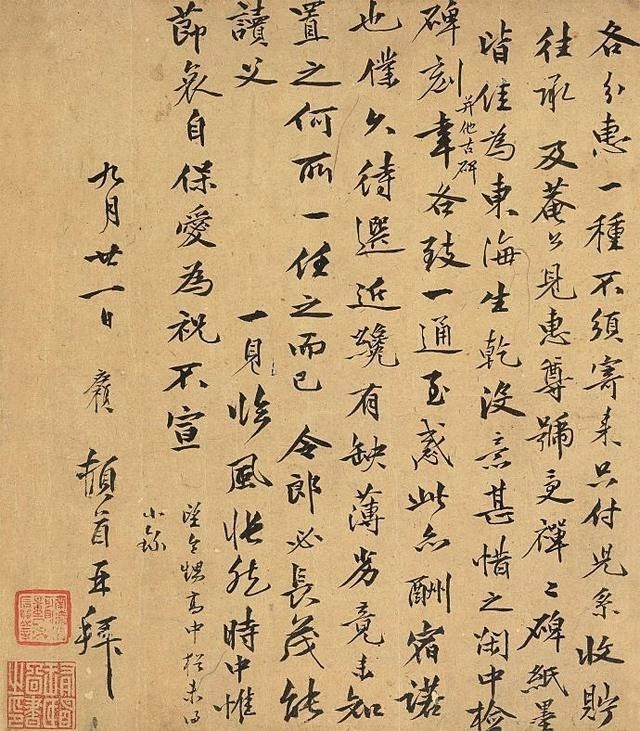 各分惠一種不須寄来只付兒系收貯
往承 及菴公見惠尊號更禪〻碑紙墨
皆佳為東海生乾没意甚惜之閑中檢
碑刻并他古碑幸各致一通至感此亦酬宿諾
也僕久待選近纔有缺薄劣竟未知
置之何所一任之而已 令郎必長茂能
讀父
一見臨風悵然時中惟
節哀自保愛為祝不宣
小録 高中
九月廿一日 頓首再拜